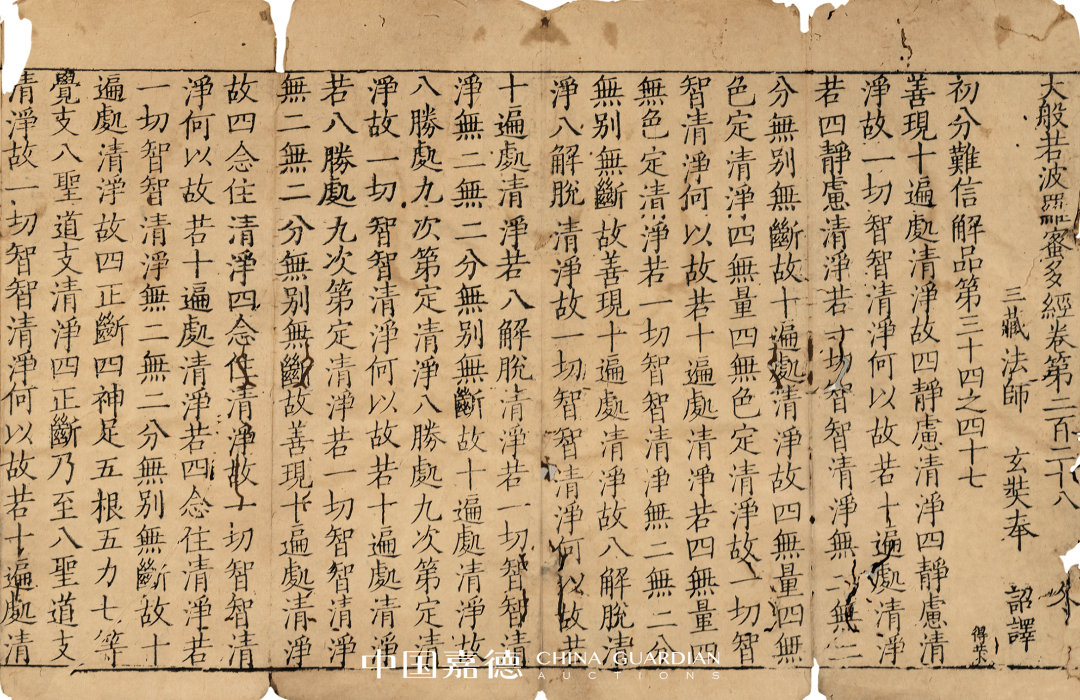 大般若波羅蜜多經卷第二百二十八
三藏法師 玄奘奉 詔譯
初分難信解品第三十四之四十七
善現十遍處清淨故四靜慮清淨四靜慮清
淨故一切智智清淨何以故若十遍處清淨
若四靜慮清淨若一切智智清淨無二無二
分無別無斷故十遍處清淨故四無量四無
色定清淨四無量四無色定清淨故一切智
智清淨何以故若十遍處清淨若四無量四
無色定清淨若一切智智清淨無二無二分
無別無斷故善現十遍處清淨故八解脫清
淨八解脫清淨故一切智智清淨何以故若
十遍處清淨若八解脫清淨若一切智智清
淨無二無二分無別無斷故十遍處清淨故
八勝處九次第定清淨八勝處九次第定清
淨故一切智智清淨何以故若十遍處清淨
若八勝處九次第定清淨若一切智智清淨
無二無二分無別無斷故善現十遍處清淨
故四念住清淨四念住清淨故一切智智清
淨何以故若十遍處清淨若四念住清淨若
一切智智清淨無二無二分無別無斷故十
遍處清淨故四正斷四神足五根五力七等
覺支八聖道支清淨四正斷乃至八聖道支
清淨故一切智智清淨何以故若十遍處清
中国嘉德 CHINA GUARDIAN
AUCTIONS